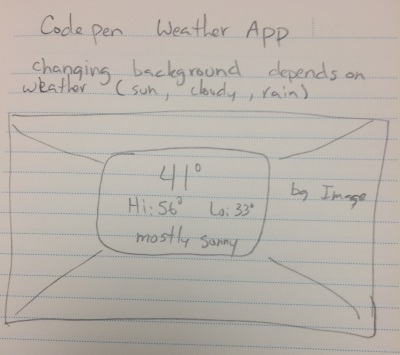 Codepen Weather App
changing background depends on
weather (sun, cloudy, rain)
41°
Hi: 56° Lo: 33°
bg Image
mostly sunny